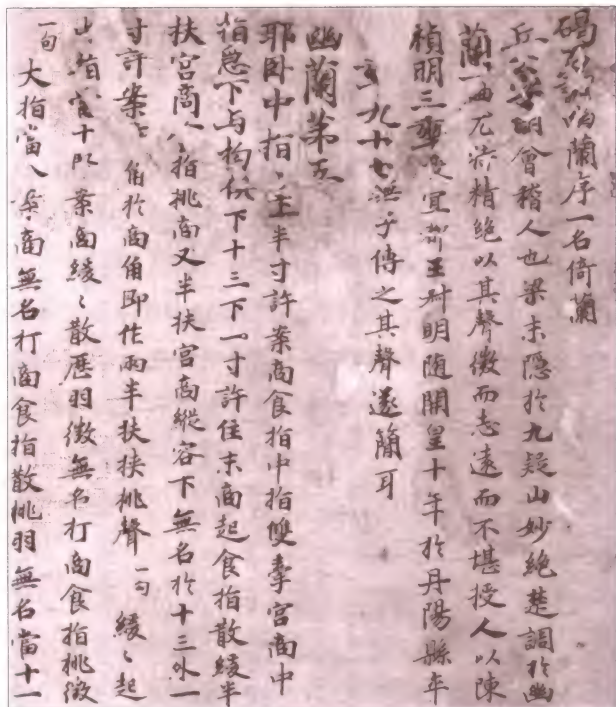 蘭序一名倚蘭
丘公字明會稽人也梁末隱於九疑山妙絕楚調於幽
蘭一曲尤精絕以其聲微而志遠而不堪授人以陳
禎明三宜王明隨開皇十年於丹陽縣
九十七子傳之其聲遂簡耳
幽蘭第五
耶卧中指上半寸許案商食指中指雙牽宮商中
指急下与拘俱下十三下一寸許住末商起食指散緩半
扶宮商食指挑商又半扶宮商縱容下無名於十三外一
寸許案商角於商角即作兩半扶挾挑聲一句 緩〻起
指當十案商緩〻散歷羽徵無名打商食指挑徵
一句 大指當八案商無名打商食指散挑羽無名當十一